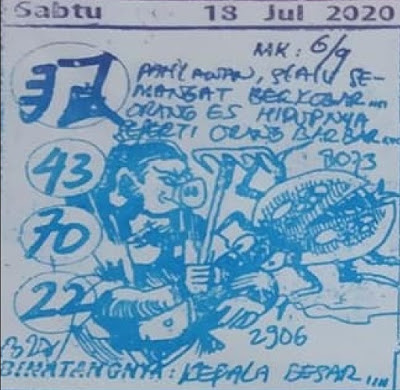 Sabtu 18 Jul 2020
MK: 6/9
PAHLAWAN, SELALU SE-
MANGAT BERKOBAR....
ORANG ES HIDUPNYA
SEPERTI ORANG BARBAR...
43
70
22
2906
BINATANGNYA: KEPALA BESAR....